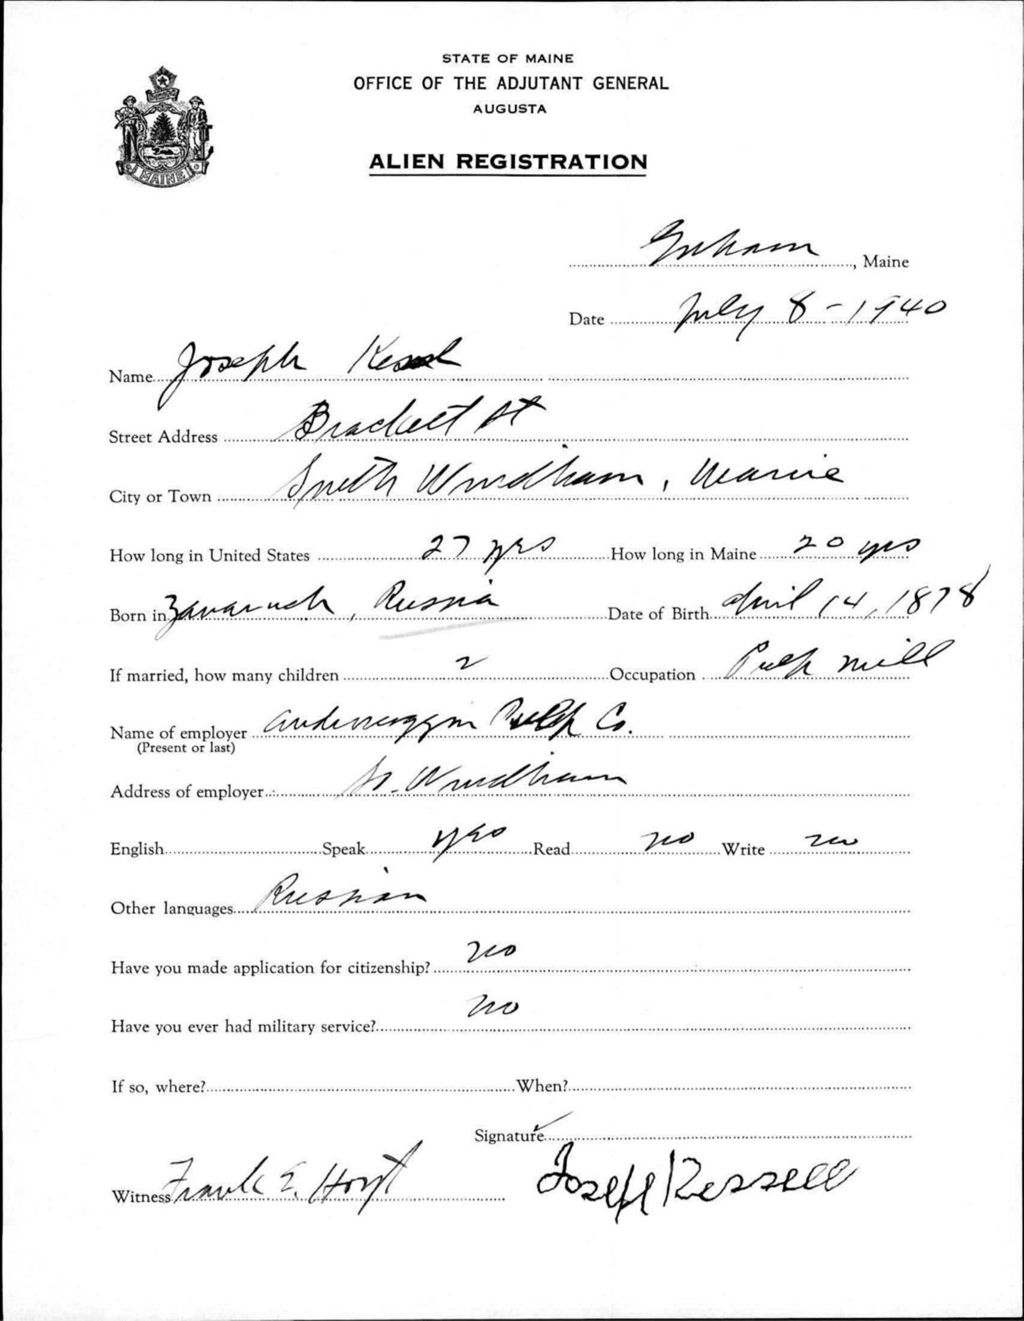 STATE OF MAINE
OFFICE OF THE ADJUTANT GENERAL
AUGUSTA
ALIEN REGISTRATION
MAINE
Gorham, Maine
Date July 8-1940
Name Joseph
Street Address Brackett St
City or Town South Windham, Maine
How long in United States 27 yrs How long in Maine 20 yrs
Born in Russia Date of Birth April 14, 1878
If married, how many children 2 Occupation Pulp mill
Name of employer Pulp Co.
(Present or last)
Address of employer So. Windham
English Speak yes Read no Write no
Other languages Russian
Have you made application for citizenship? no
Have you ever had military service? no
If so, where? When?
Signature
Witness Frank E. Hoyt Josepf Kessell